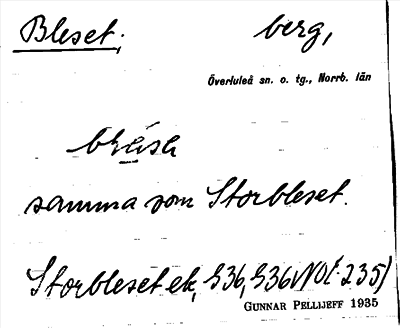 Bleset; berg,
Överluleå sn. o. tg., Norrb. län
samma som Storbleset.
Storbleset ek, S36, S36 NO (235)
GUNNAR PELLIJEFF 1935